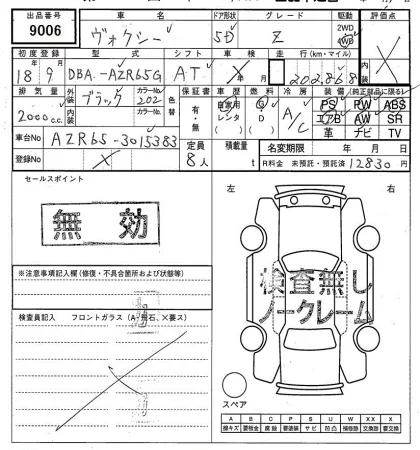 出品番号 車名 ドア形状 グレード 駆動 評価点
9006 ヴォクシー 5D Z 2WD 4WD X
初度登録 型式 シフト 車検 走行(km・マイル) 内装
18 9 DBA-AZR65G AT X 年 月 202868
排気量 外装 カラーNo. 色替 保証書 車歴 燃料 冷房 装備(純正部品に限る)
2000 c.c. ブラック 202 有・無 自家用 レンタ G・D A/C PS PW ABS
内装 カラーNo. エアB AW SR
革 ナビ TV
車台No AZR65-3015383 定員 8人 積載量 t 名変期限 年 月 日
登録No X R料金 未預託・預託済 12830 円
セールスポイント 左 右
無効
※注意事項記入欄(修復・不具合箇所および状態等)
検査無し
ノークレーム
検査員記入 フロントガラス(A・飛石、X要ス)
スペア
A B C P S U W XX X
線キズ 要板金 腐蝕 要塗装 サビ 凹凸 補修跡 交換跡 要交換